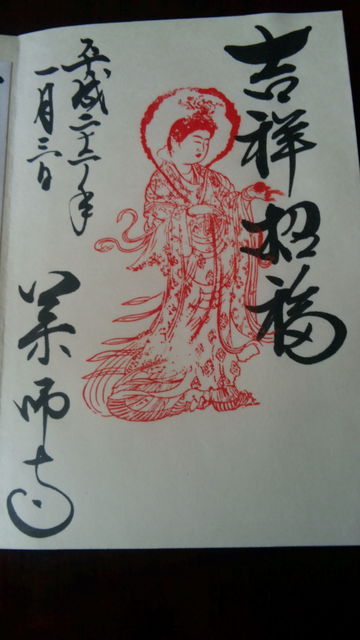 吉祥招福
平成二十一年
一月三日
薬師寺